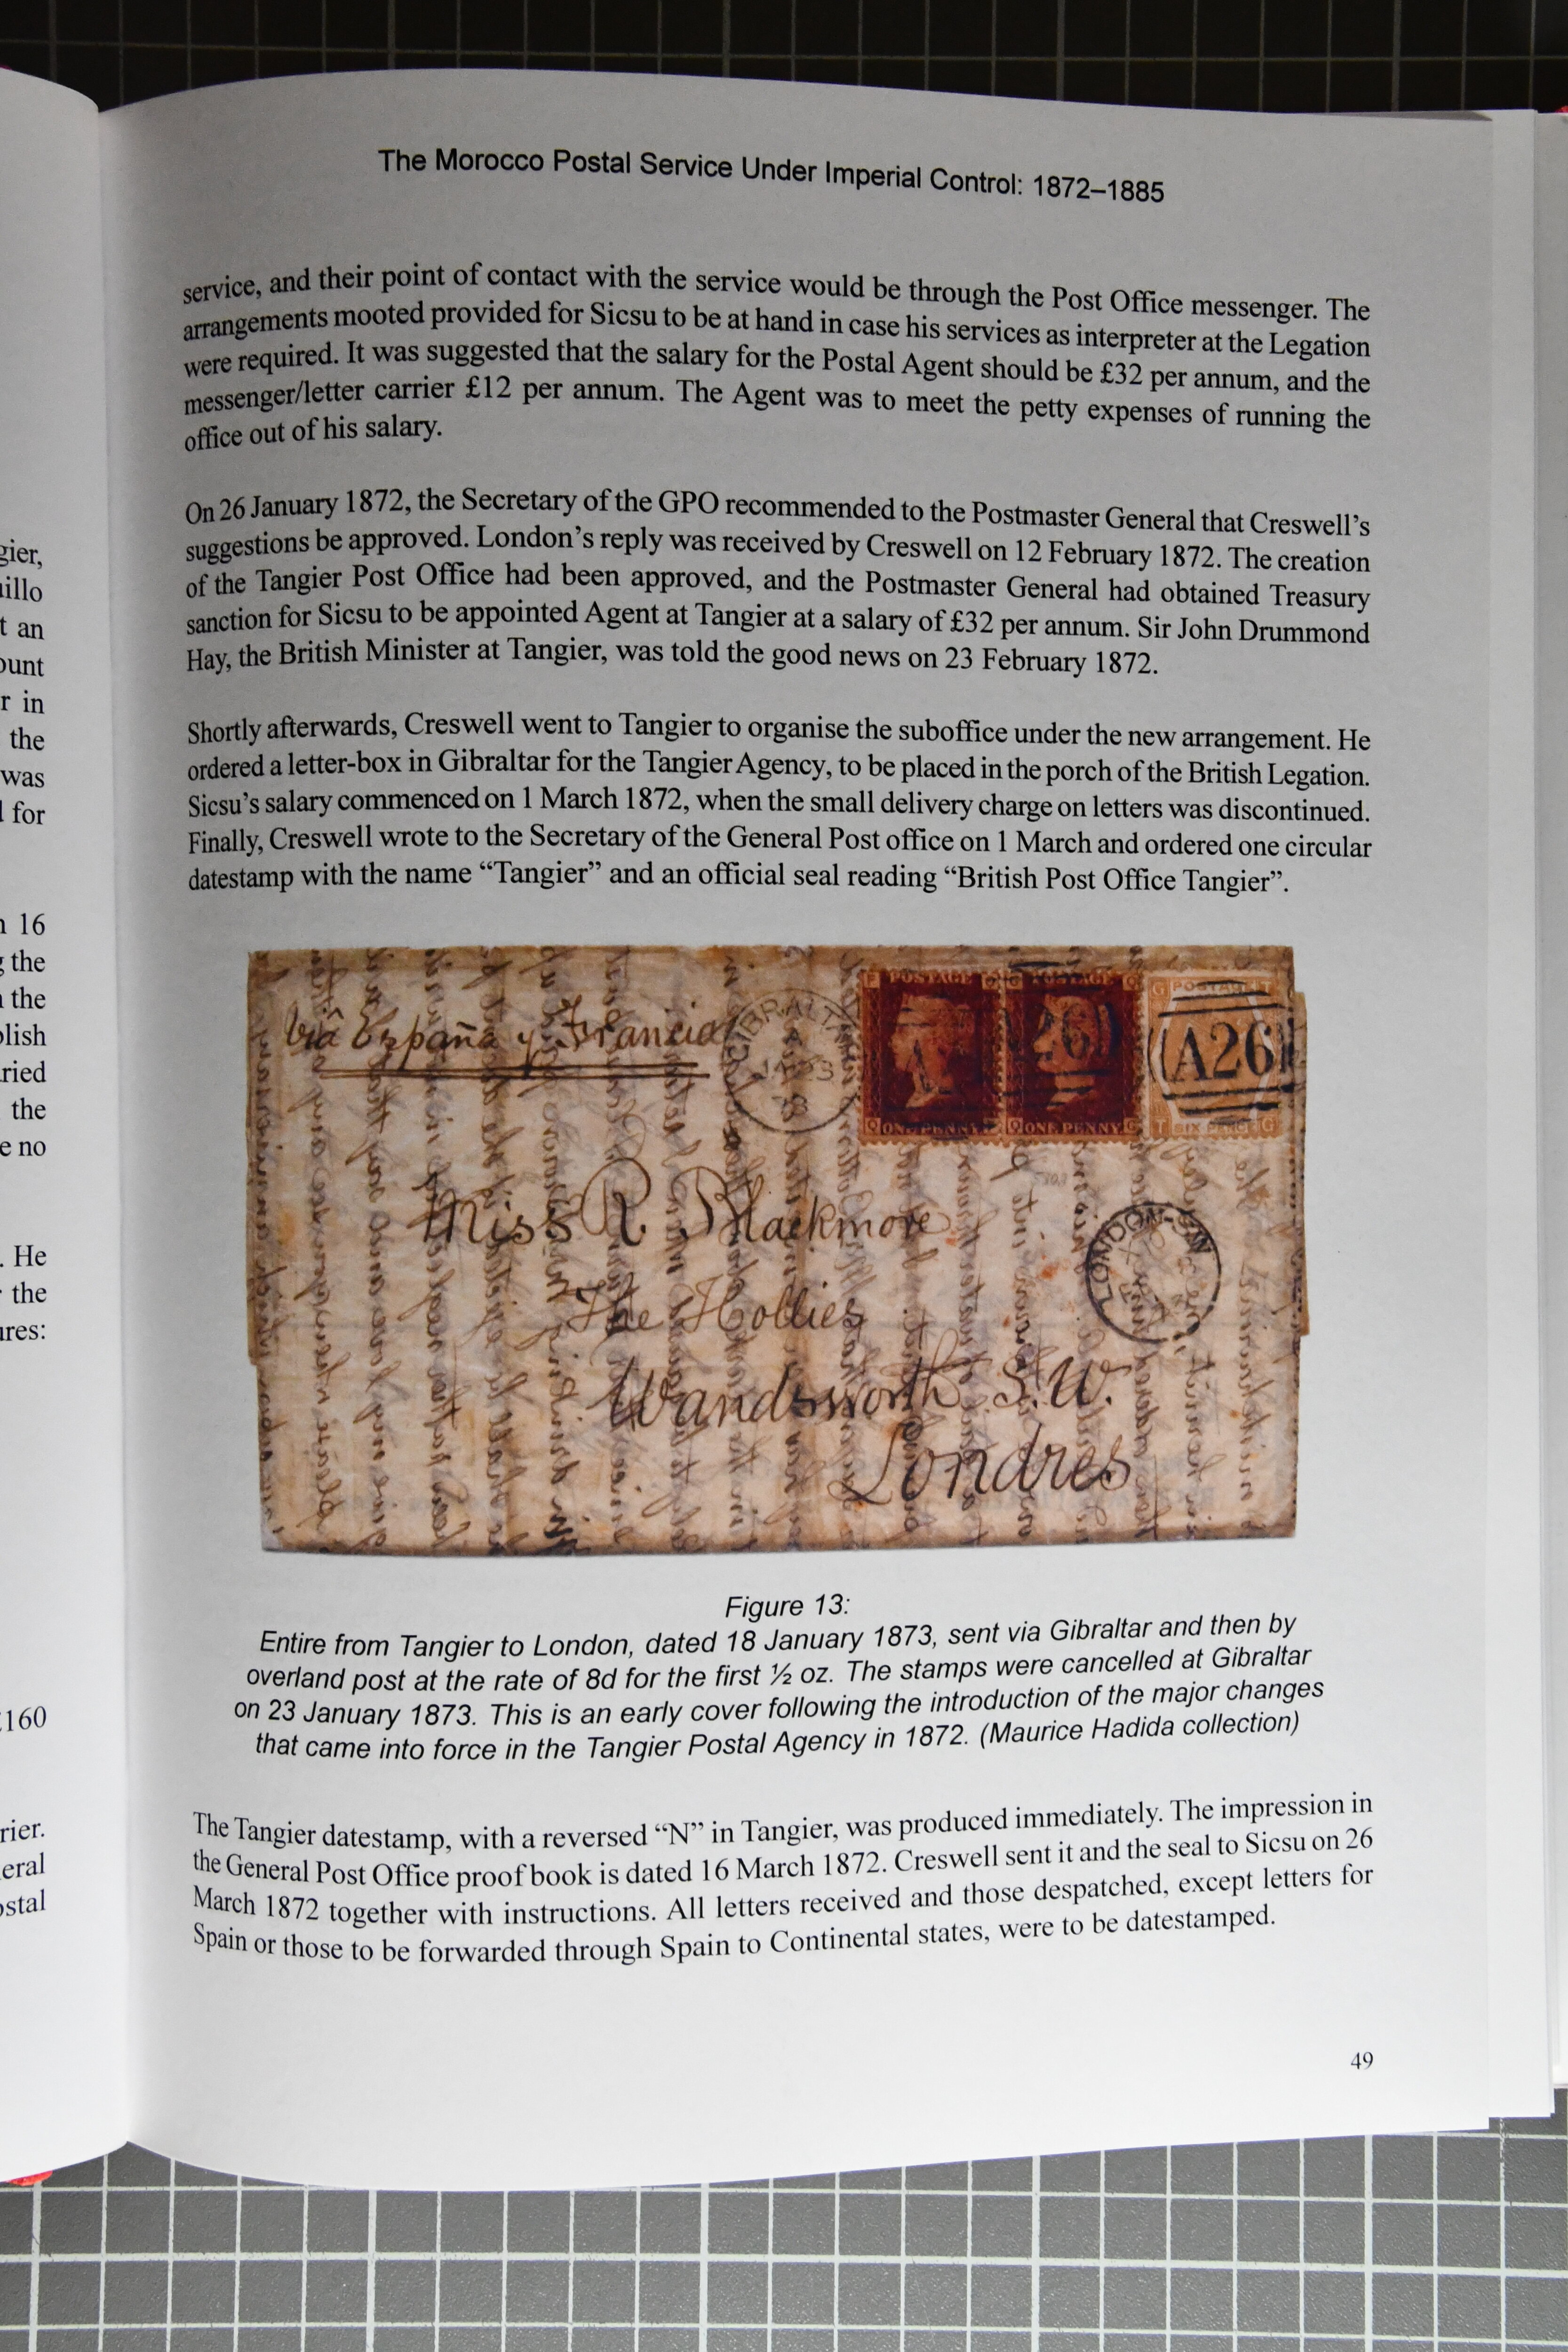 The Morocco Postal Service Under Imperial Control: 1872–1885
service, and their point of contact with the service would be through the Post Office messenger. The
arrangements mooted provided for Sicsu to be at hand in case his services as interpreter at the Legation
were required. It was suggested that the salary for the Postal Agent should be £32 per annum, and the
messenger/letter carrier £12 per annum. The Agent was to meet the petty expenses of running the
office out of his salary.
On 26 January 1872, the Secretary of the GPO recommended to the Postmaster General that Creswell’s
suggestions be approved. London’s reply was received by Creswell on 12 February 1872. The creation
of the Tangier Post Office had been approved, and the Postmaster General had obtained Treasury
sanction for Sicsu to be appointed Agent at Tangier at a salary of £32 per annum. Sir John Drummond
Hay, the British Minister at Tangier, was told the good news on 23 February 1872.
Shortly afterwards, Creswell went to Tangier to organise the suboffice under the new arrangement. He
ordered a letter-box in Gibraltar for the Tangier Agency, to be placed in the porch of the British Legation.
Sicsu’s salary commenced on 1 March 1872, when the small delivery charge on letters was discontinued.
Finally, Creswell wrote to the Secretary of the General Post office on 1 March and ordered one circular
datestamp with the name “Tangier” and an official seal reading “British Post Office Tangier”.
Via España y Francia
GIBRALTAR
A
JA 23
73
POSTAGE
ONE PENNY
POSTAGE
A26
ONE PENNY
POSTAGE
A26
SIX PENCE
Miss R. Blackmore
The Hollies
Wandsworth S.W.
Londres
LONDON
Figure 13:
Entire from Tangier to London, dated 18 January 1873, sent via Gibraltar and then by
overland post at the rate of 8d for the first ½ oz. The stamps were cancelled at Gibraltar
on 23 January 1873. This is an early cover following the introduction of the major changes
that came into force in the Tangier Postal Agency in 1872. (Maurice Hadida collection)
The Tangier datestamp, with a reversed “N” in Tangier, was produced immediately. The impression in
the General Post Office proof book is dated 16 March 1872. Creswell sent it and the seal to Sicsu on 26
March 1872 together with instructions. All letters received and those despatched, except letters for
Spain or those to be forwarded through Spain to Continental states, were to be datestamped.
49